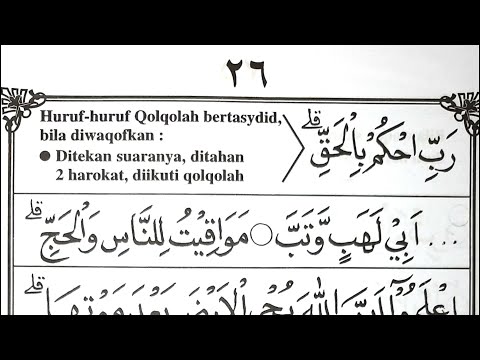 ٢٦
Huruf-huruf Qolqolah bertasydid,
bila diwaqofkan :
● Ditekan suaranya, ditahan
2 harokat, diikuti qolqolah
رَبِّ احْكُمْ بِالْحَقِّ ۗ
... اَبِيْ لَهَبٍ وَّتَبَّ ○ مَوَاقِيْتُ لِلنَّاسِ وَالْحَجِّ ۗ
اِعْلَمُوْٓا اَنَّ اللّٰهَ يُحْيِ الْاَرْضَ بَعْدَ مَوْتِهَا ۗ